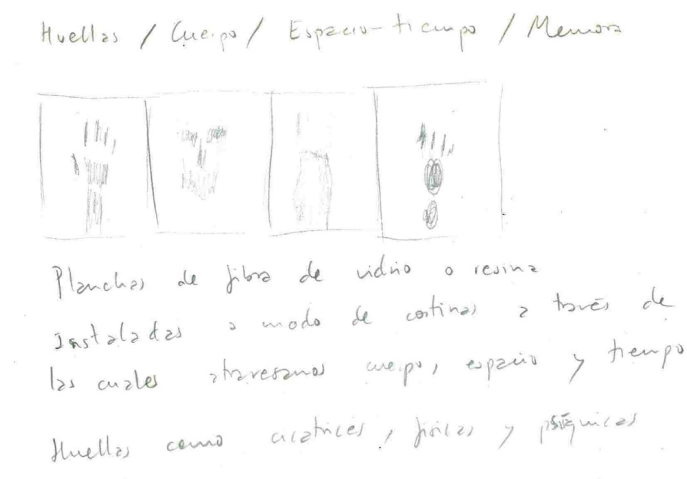 Huellas / Cuerpo / Espacio-tiempo / Memoria
Planchas de fibra de vidrio o resina
Instaladas a modo de cortinas a través de
las cuales atravesamos cuerpo, espacio y tiempo
Huellas como cicatrices, físicas y psíquicas